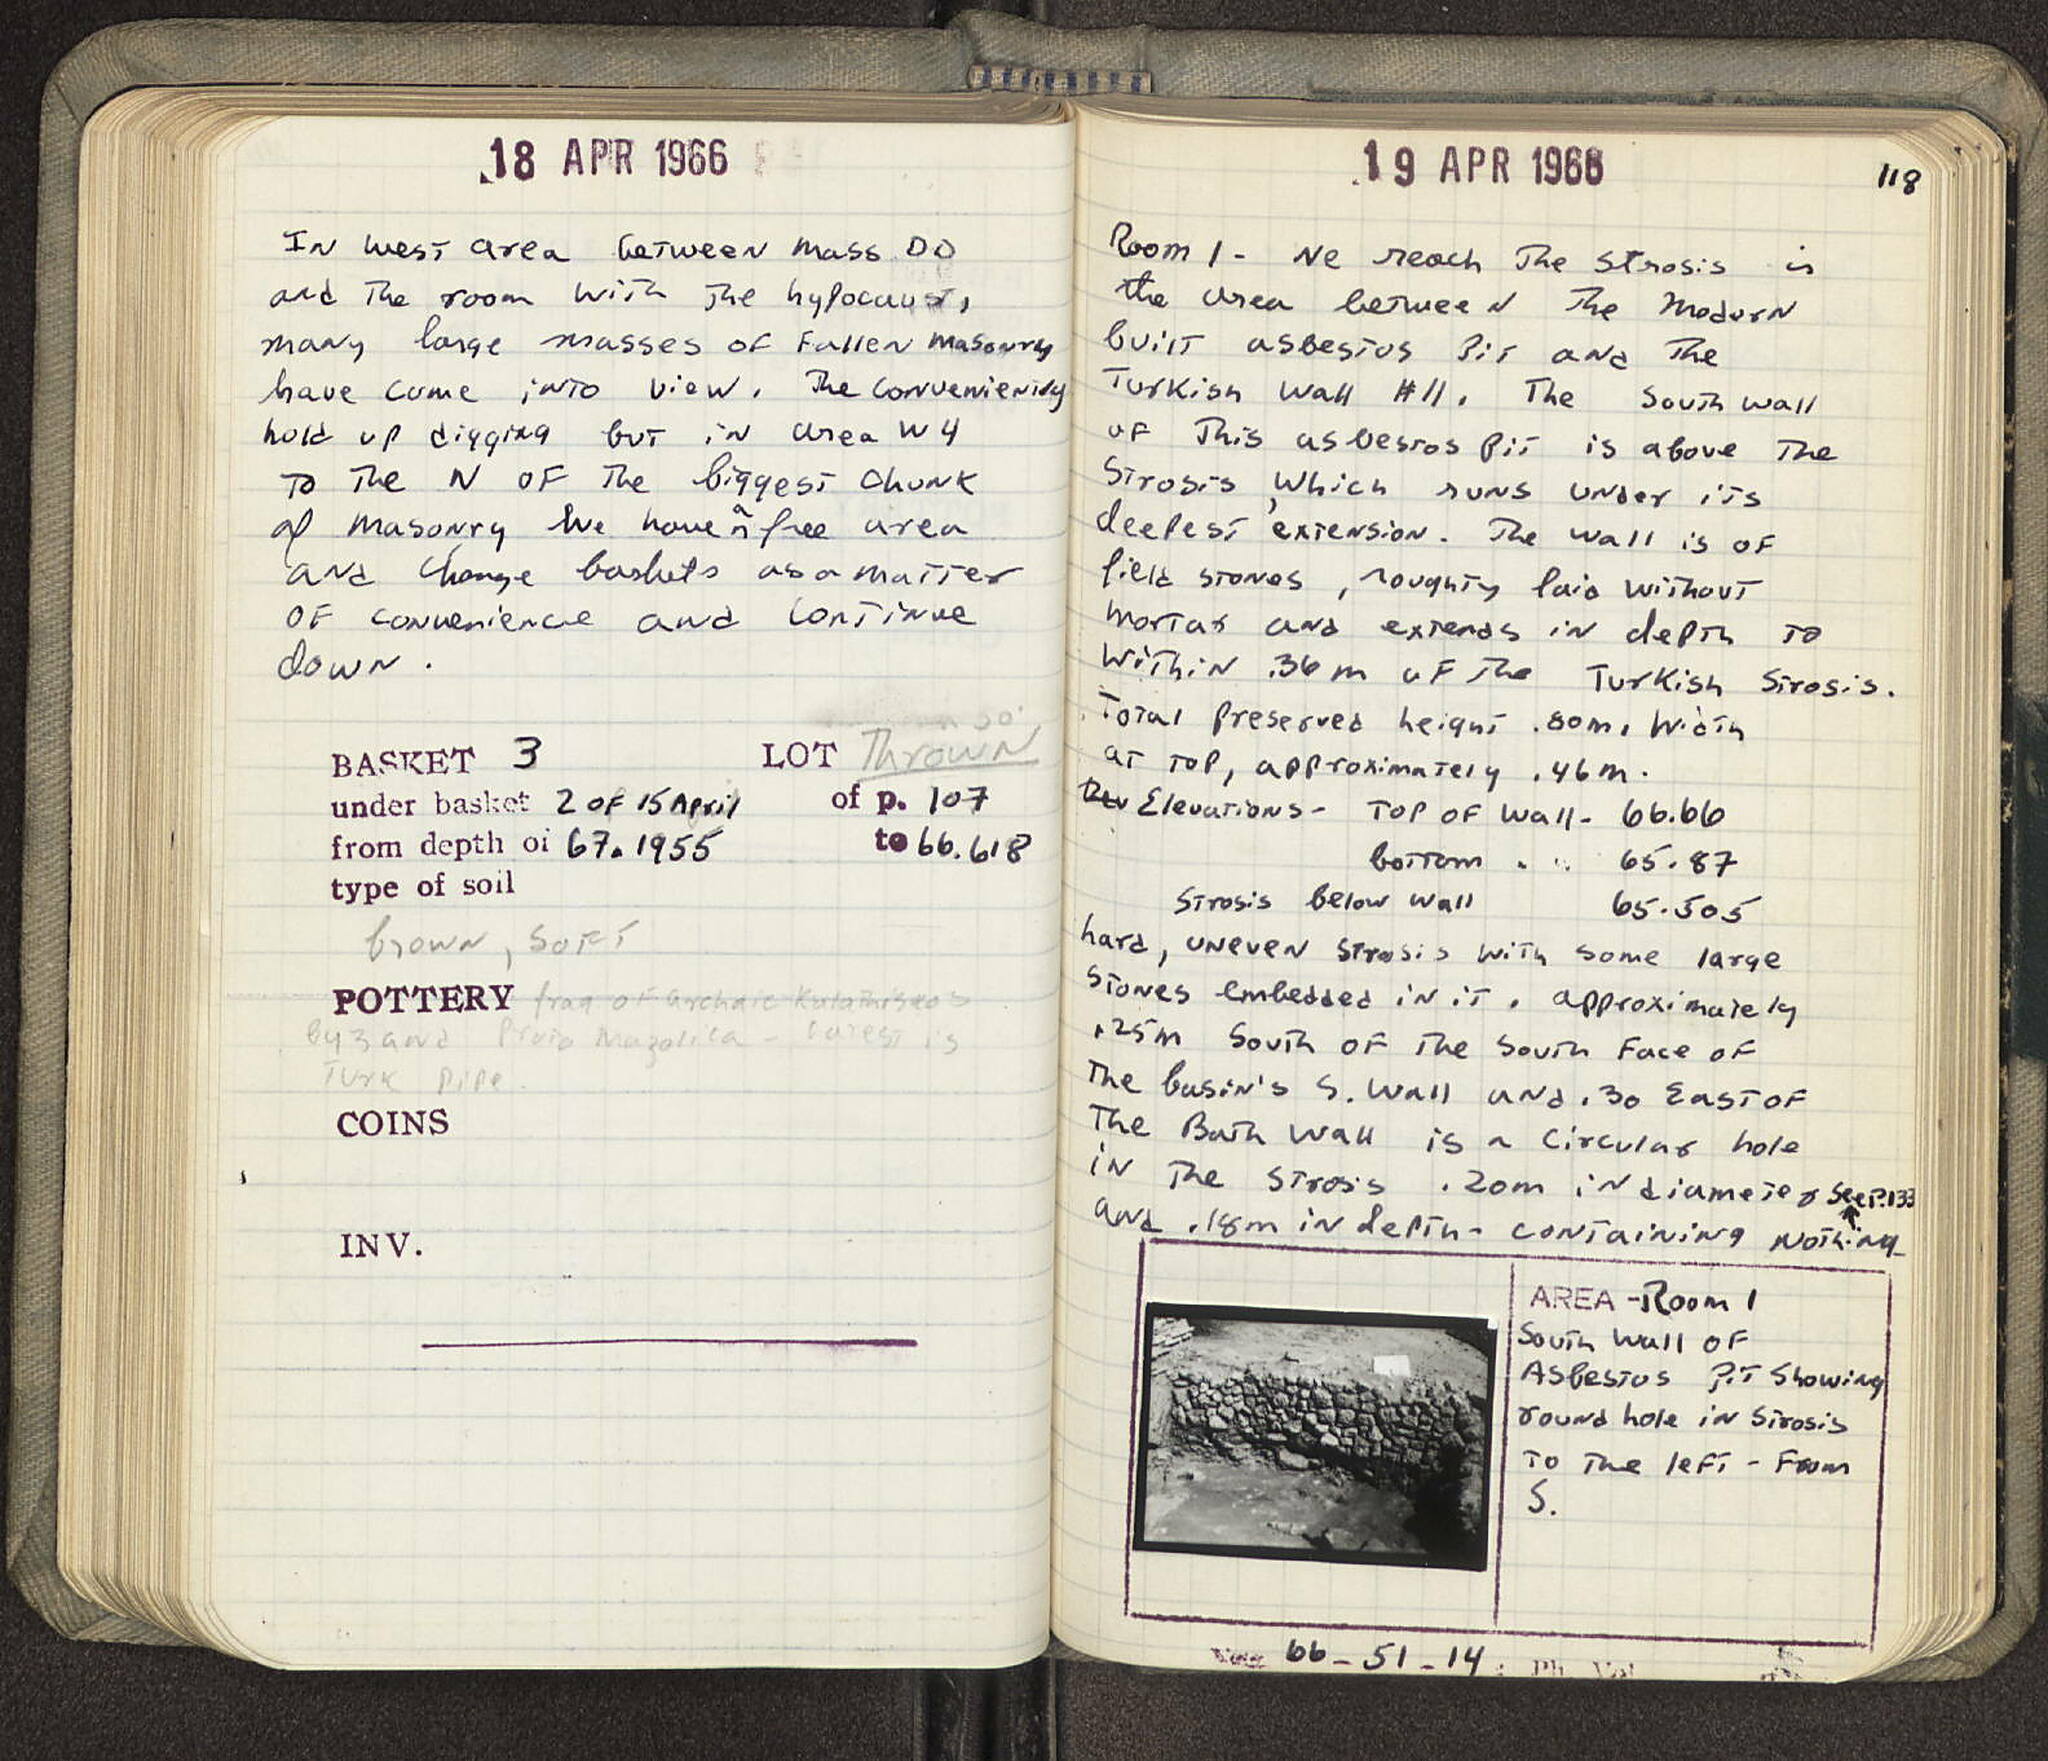 18 APR 1966
In west area between mass DD
and the room with the hypocaust,
many large masses of fallen masonry
have come into view. The convenieniy
hold up digging but in area W4
to the N of the biggest chunk
of masonry we have a free area
and change baskets as a matter
of convenience and continue
down.
BASKET 3 LOT Thrown
under basket 2 of 15 April of p. 107
from depth of 67.1955 to 66.618
type of soil
brown, soft
POTTERY frag of archaic Kalathiskos
byz and Proto Magolica - latest is
Turk pipe.
COINS
INV.
19 APR 1966
118
Room 1 - We reach the strosis in
the area between the modern
built asbestos pit and the
Turkish wall #11. The south wall
of this asbestos pit is above the
strosis, which runs under its
deepest extension. The wall is of
field stones, roughly laid without
mortar and extends in depth to
within .36m of the Turkish strosis.
Total preserved height .80m, width
at top, approximately .46m.
Elevations - Top of wall - 66.66
bottom " " 65.87
Strosis below wall 65.505
hard, uneven strosis with some large
stones embedded in it. approximately
.25m south of the south face of
the basin's S. wall and .30 East of
the Bath wall is a circular hole
in the strosis .20m in diameter See P.133
and .18m in depth - containing nothing
AREA - Room 1
South wall of
Asbestos Pit showing
round hole in strosis
to the left - From
S.
66-51-14